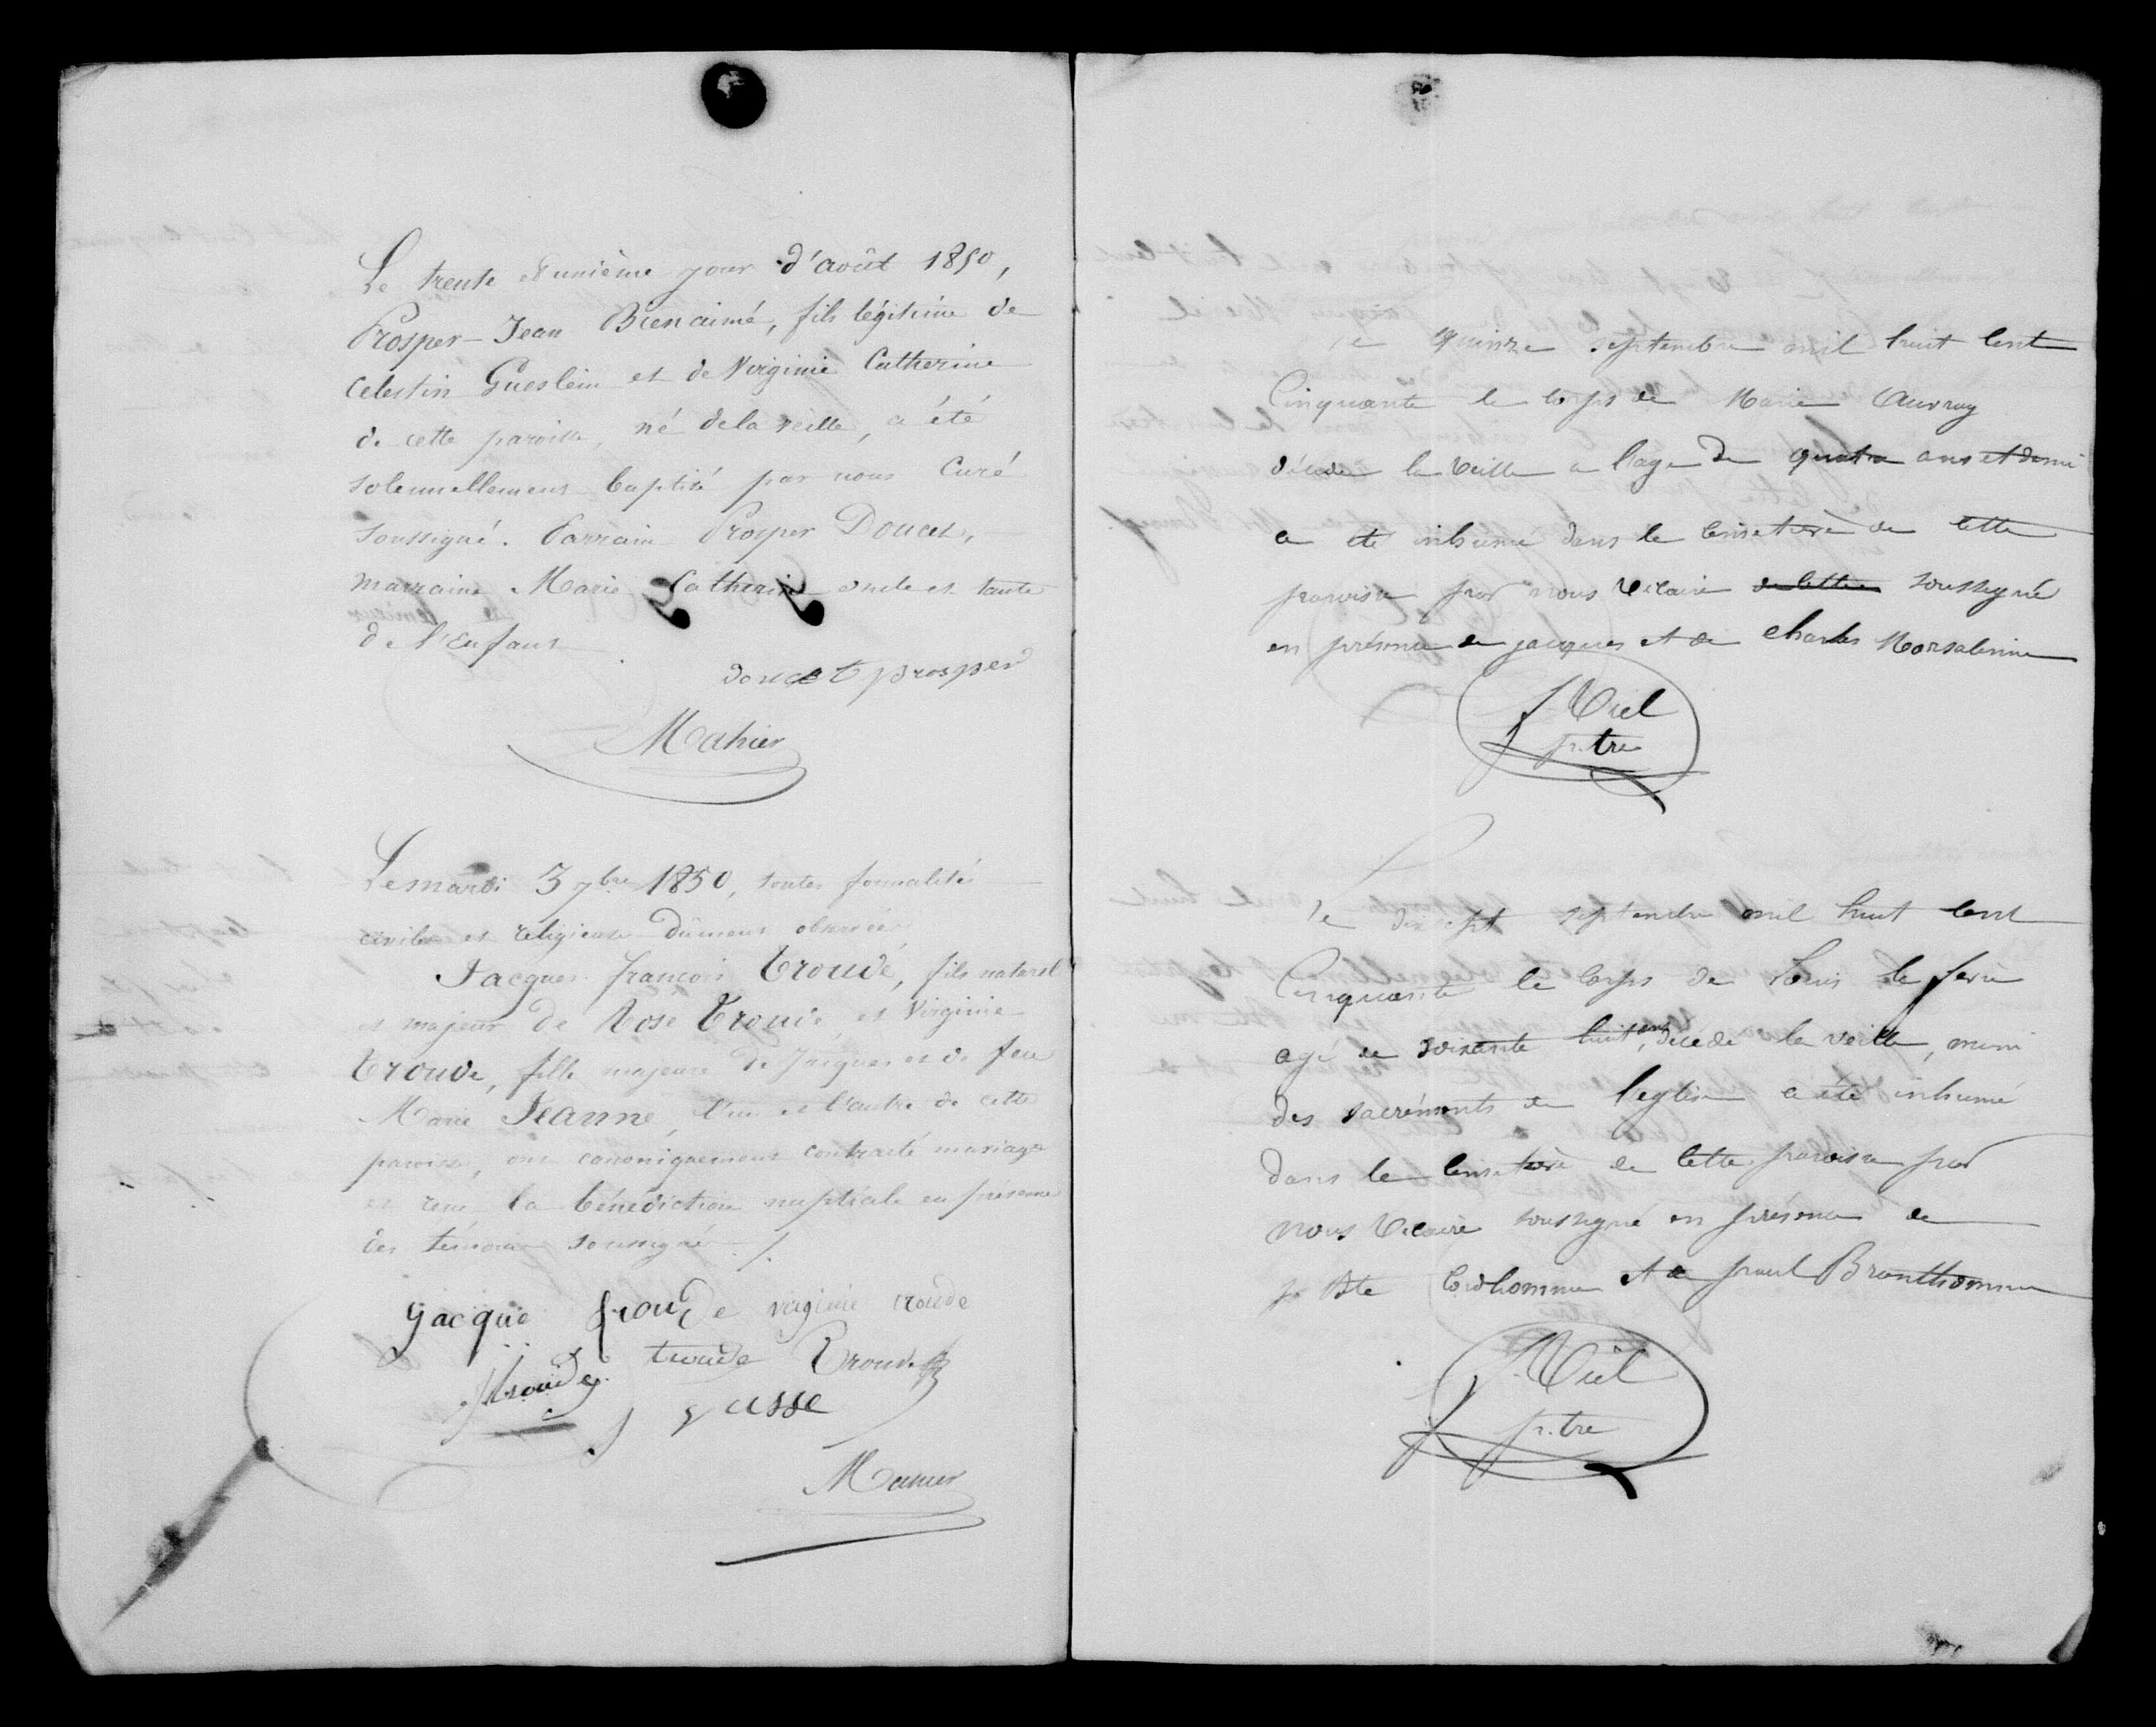 Le trente et unième jour d'août 1850,
Prosper-Jean Bienaimé, fils légitime de
Celestin Gueslein et de Virginie Catherine
de cette paroisse, né de la veille, a été
solennellement baptisé par nous Curé
soussigné. Parrain Prosper Doucet,
marraine Marie Catherine oncle et tante
de l'Enfant
doucet prosper
Mahier
Le mardi 3 7bre 1850, toutes formalités
civiles et religieuses dûment observées
Jacques françois Troude, fils naturel
et majeur de Rose Troude, et Virginie
Troude, fille majeure de Jacques et de feue
Marie Jeanne, l'un et l'autre de cette
paroisse, ont canoniquement contracté mariage
et reçu la bénédiction nuptiale en présence
des témoins soussignés ./.
Jacque troude virginie troude
troude troude Troude
gusse
Mahier
le quinze septembre mil huit Cent
Cinquante le corps de Marie Auvray
décédée la veille a l'age de quatre ans et demi
a été inhumé dans le Cimetière de Cette
paroisse par nous Vicaire de Cette soussigné
en présence de jacques et de Charles Morsalinne
Viel
p.tre
le dix sept septembre mil huit Cent
Cinquante le Corps de Louis le
agé de soixante huit ans, décédé la veille, muni
des sacréments de l'eglise a été inhumé
dans le Cimetière de Cette paroisse par
nous Vicaire soussigné en présence de
j. Bte et de paul
Viel
p.tre